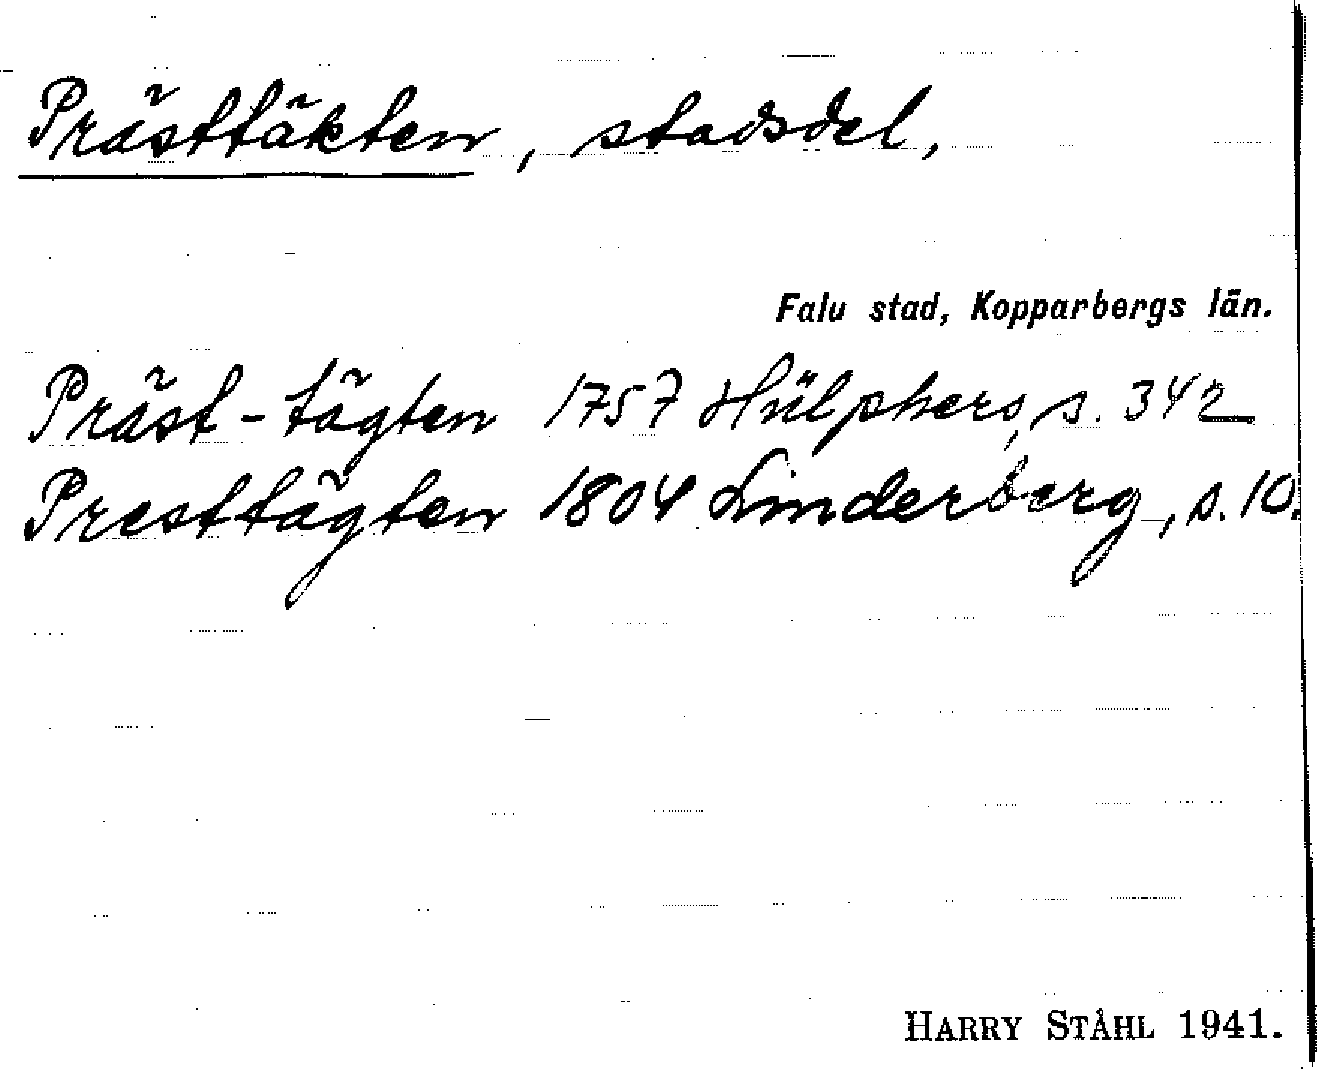 Prästtäkten, stadsdel,
Falu stad, Kopparbergs län.
Präst-tägten 1757 Hülphers, s. 342
Presttägten 1804 Linderberg, s. 10.
HARRY STÅHL 1941.